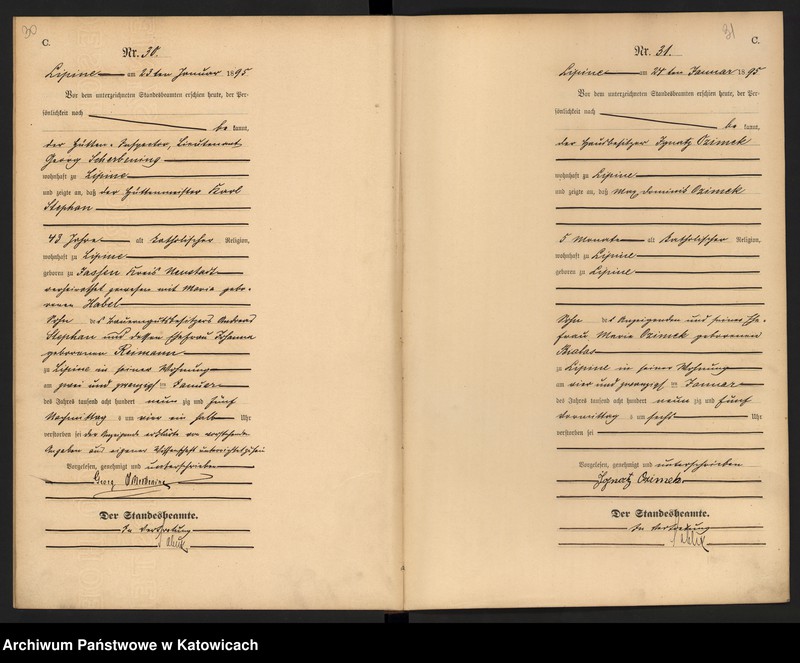 30
C.
Nr. 30.
Lipine am 23ten Januar 1895
Vor dem unterzeichneten Standesbeamten erschien heute, der Per-
sönlichkeit nach
be kannt,
der Hütten-Inspector, Lieutenant
Georg Scherbening
wohnhaft zu Lipine
und zeigte an, daß der Hüttenmeister Karl
Stephan
43 Jahre alt katholischer Religion,
wohnhaft zu Lipine
geboren zu Kreis Neustadt
verheirathet gewesen mit Maria gebo-
renen Habel
Sohn des Bauerngutsbesitzers Andreas
Stephan und dessen Ehefrau Johanna
geborenen Reimann
zu Lipine in seiner Wohnung
am zwei und zwanzigsten Januar
des Jahres tausend acht hundert neun zig und fünf
Nachmittag s um vier ein halb Uhr
verstorben sei der Anzeigende erklärte von vorstehenden
Angaben aus eigener Wissenschaft unterrichtet zu sein
Vorgelesen, genehmigt und unterschrieben
Georg Scherbening
Der Standesbeamte.
In Vertretung
31
C.
Nr. 31.
Lipine am 24ten Januar 1895
Vor dem unterzeichneten Standesbeamten erschien heute, der Per-
sönlichkeit nach
be kannt,
der Hausbesitzer Ignatz Ozimek
wohnhaft zu Lipine
und zeigte an, daß Max Dominik Ozimek
5 Monate alt katholischer Religion,
wohnhaft zu Lipine
geboren zu Lipine
Sohn des Anzeigenden und seiner Ehe-
frau Maria Ozimek geborenen
zu Lipine in seiner Wohnung
am vier und zwanzigsten Januar
des Jahres tausend acht hundert neun zig und fünf
Vormittag s um sechs Uhr
verstorben sei
Vorgelesen, genehmigt und unterschrieben
Ignatz Ozimek
Der Standesbeamte.
In Vertretung
Archiwum Państwowe w Katowicach